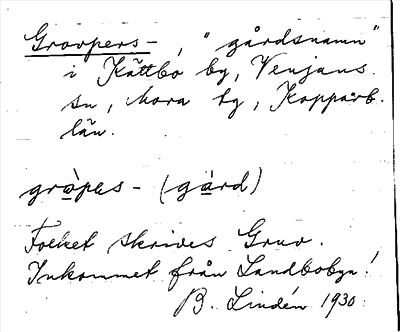 Grovpers-, "gårdsnamn"
i Kättbo by, Venjans
sn, Mora tg, Kopparb.
län.
gròpes - (gård)
Folket skrives Gruv.
Inkommet från Landbobyn!
B. Lindén 1930.